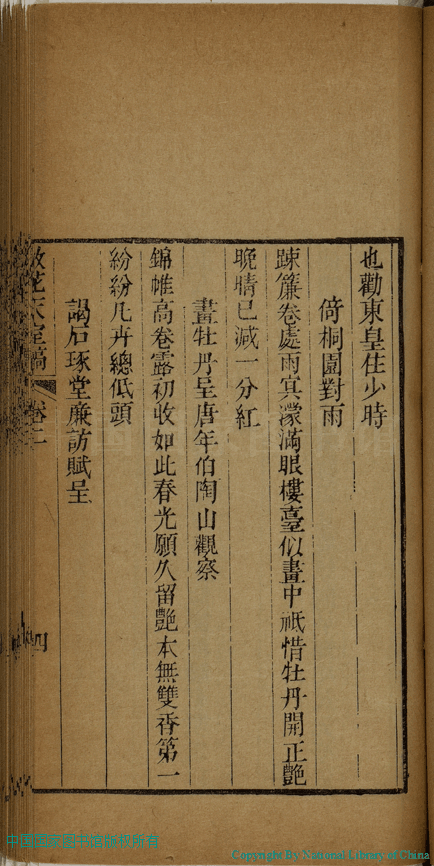 也勸東皇住少時
倚桐園對雨
踈簾卷處雨冥濛滿眼樓臺似畫中祗惜牡丹開正艷
晚晴已減一分紅
畫牡丹呈唐年伯陶山觀察
錦帷高卷露初收如此春光願久留艷本無雙香第一
紛紛凡卉總低頭
謁石琢堂廉訪賦呈
散花天室稿
卷二
四
中国国家图书馆版权所有
Copyright By National Library of China